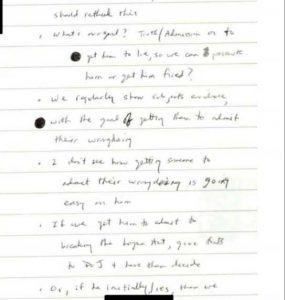 should rethink this
• What's our goal? Truth/Admission or to
get him to lie, so we can prosecute
him or get him fired?
• We regularly show subjects evidence,
with the goal of getting them to admit
their wrongdoing
• I don't see how getting someone to
admit their wrongdoing is going
easy on him
• If we get him to admit to
breaking the Logan Act, give facts
to DOJ + have them decide
• Or, if he initially lies, then we